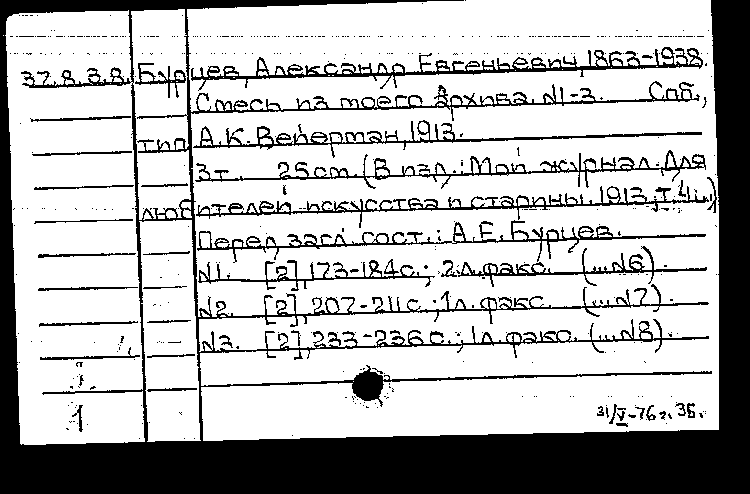 37.8.3.8. Бурцев, Александр Евгеньевич, 1863-1938.
Смесь из моего архива. №1-3. Спб.,
тип. А.К. Вейерман, 1913.
3т. 25cm. (В изд.: Мой журнал. Для
любителей искусства и старины. 1913, т.4.)
Перед загл. сост.: А.Е. Бурцев.
№1. [2], 173-184с.; 2л. факс. (...№6).
№2. [2], 207-211с.; 1л. факс. (...№7).
№3. [2], 233-236с.; 1л. факс. (...№8).
1
31/V-76г.